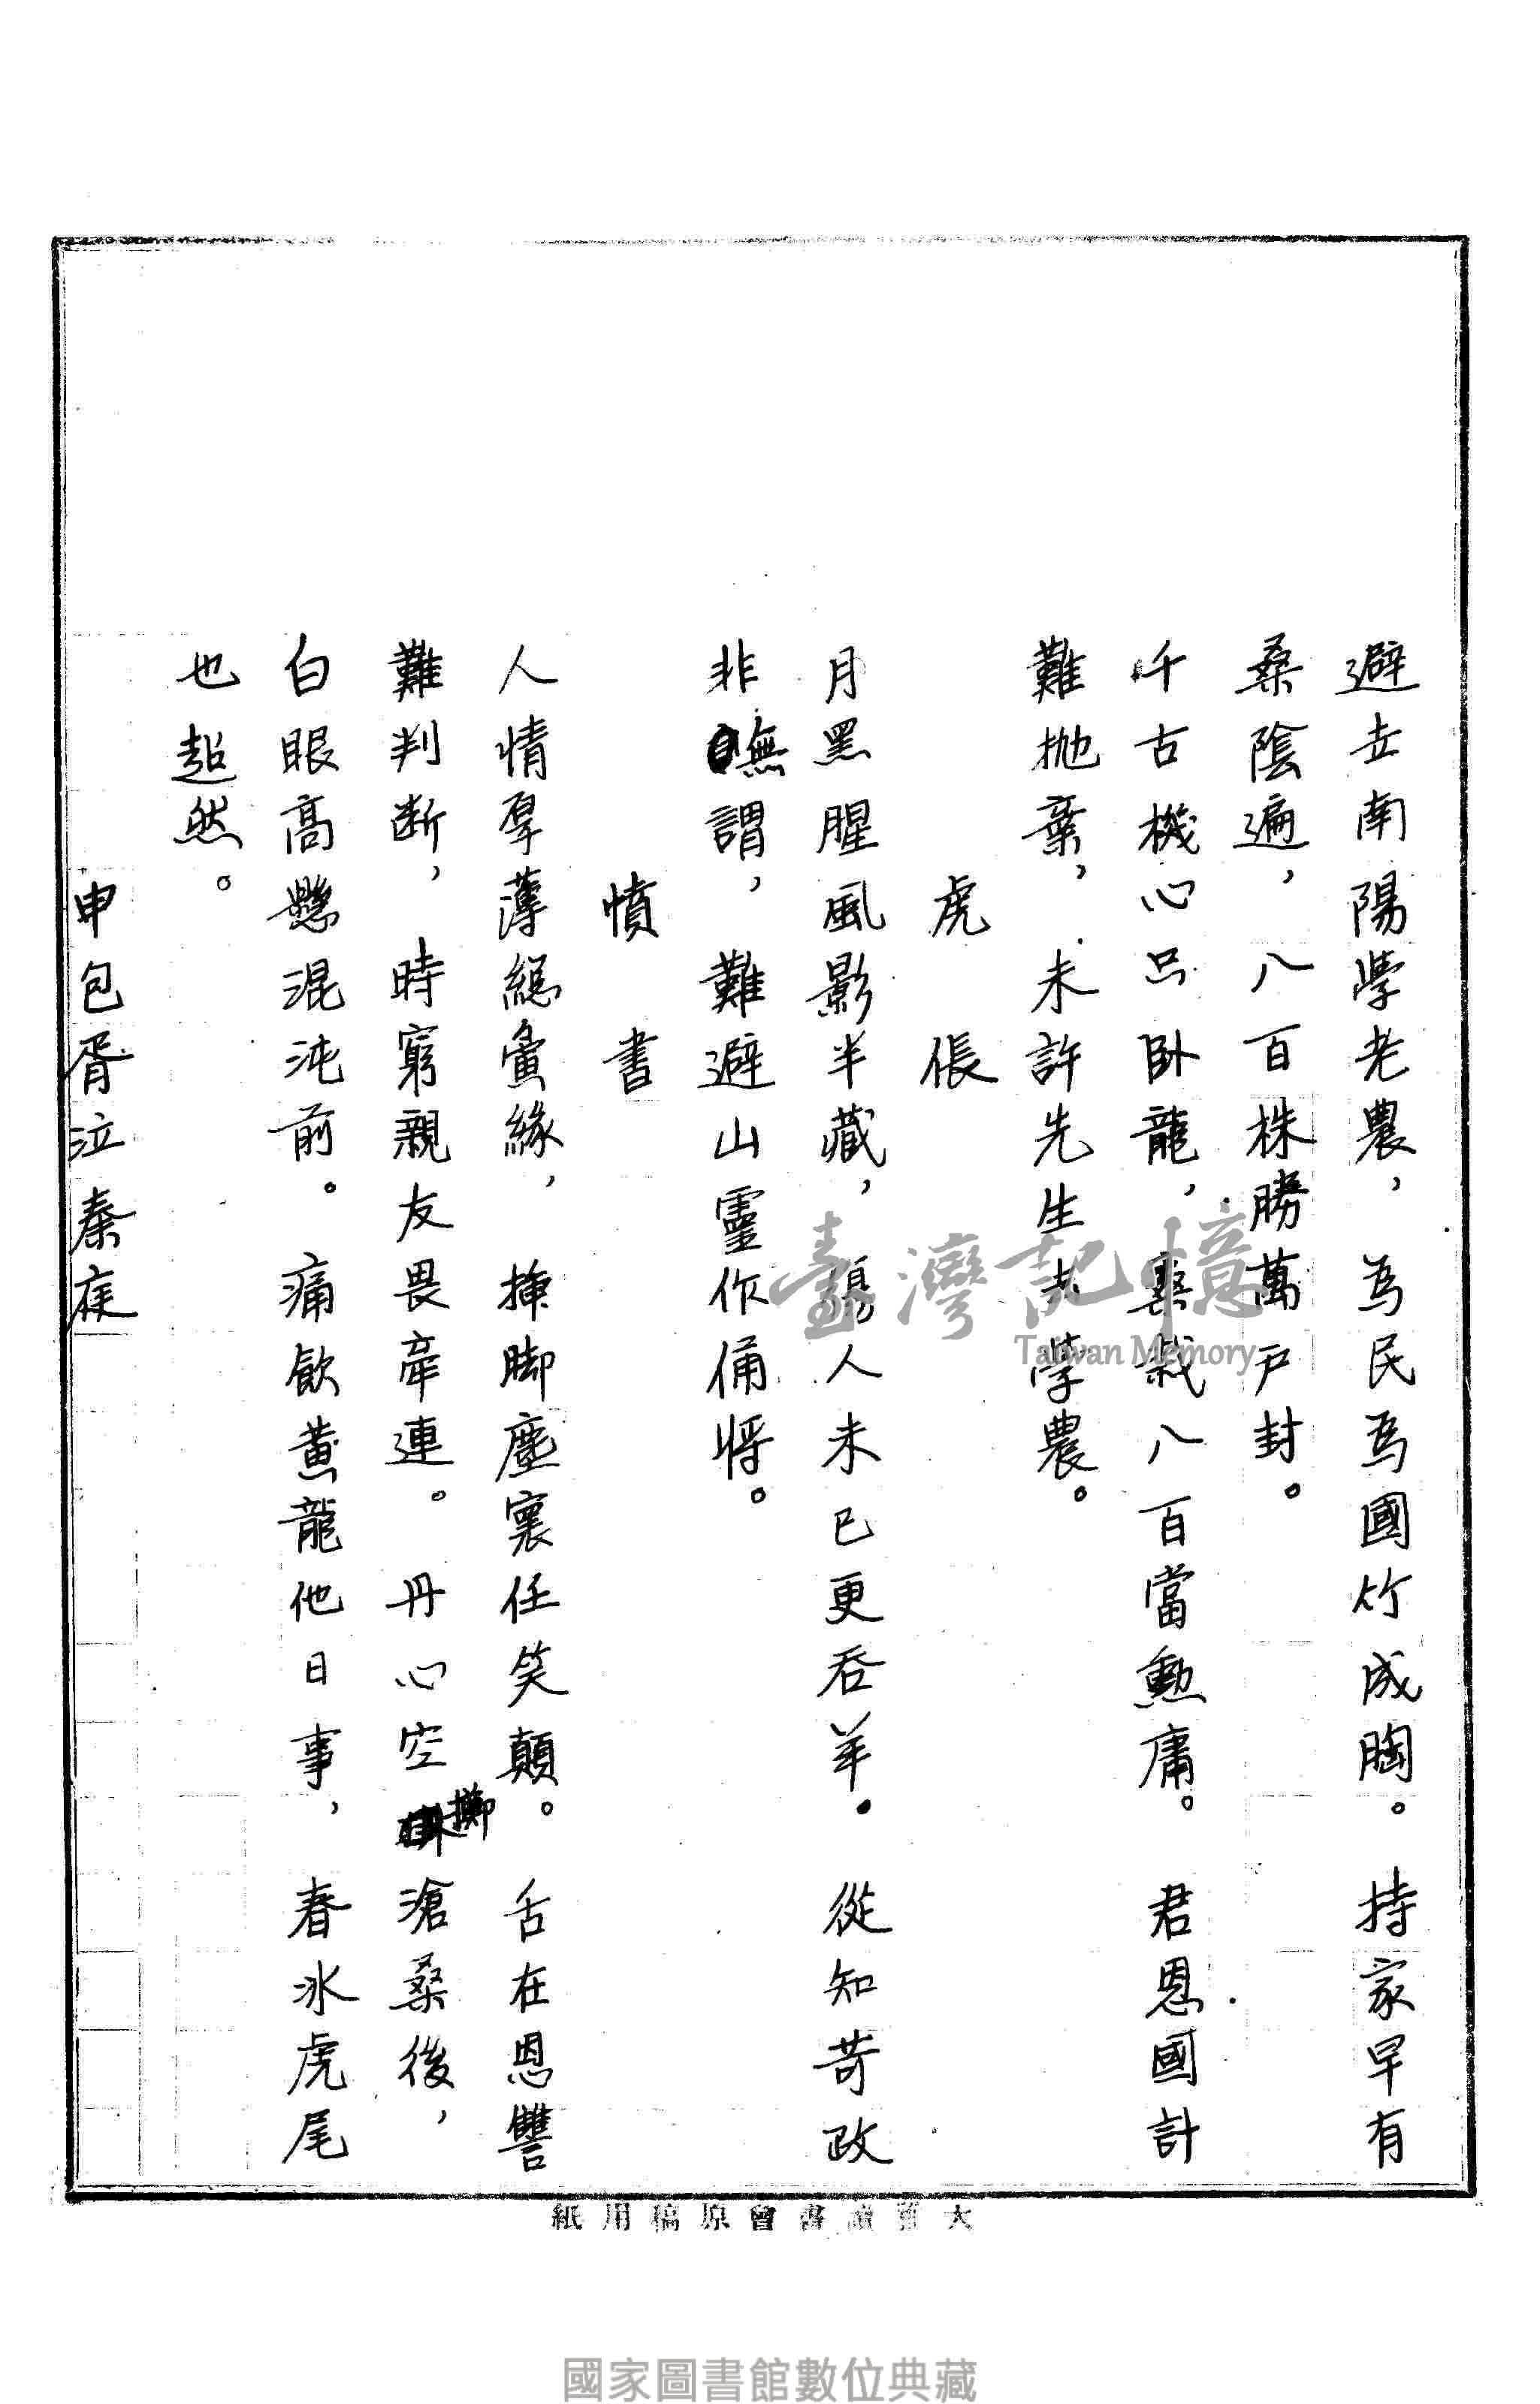 避去南陽學老農，為民為國竹成胸。持家早有
桑陰遍，八百株勝萬戶封。
千古機心只臥龍，桑栽八百當勳庸。君恩國計
難拋棄，未許先生去學農。
虎倀
月黑腥風影半藏，傷人未已更吞羊。從知苛政
非無謂，難避山靈作俑將。
憤書
人情厚薄總夤緣，捧腳塵寰任笑顛。舌在恩讐
難判断，時窮親友畏牽連。丹心空擲滄桑後，
白眼高懸混沌前。痛飲黃龍他日事，春冰虎尾
也超然。
申包胥泣秦庭
大讀書會原稿用紙
臺灣記憶
Taiwan Memory
國家圖書館數位典藏